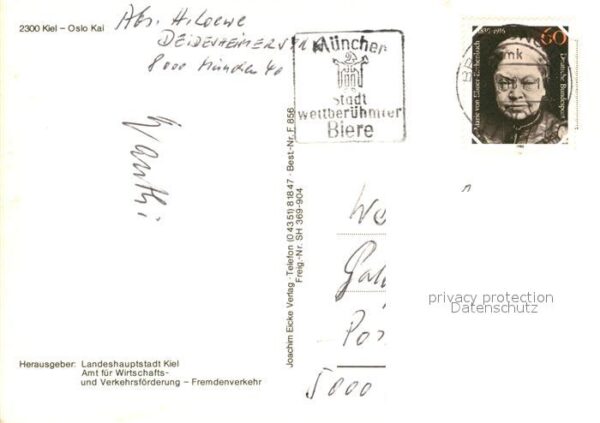 2300 Kiel – Oslo Kai
Abs. H. Loewe
8000 München 40
München
Stadt
weltberühmter
Biere
60
1830-1916
Marie von Ebner-Eschenbach
Deutsche Bundespost
Joachim Eicke Verlag · Telefon (0 43 51) 8 18 47 · Best.-Nr. F 856
Freig.-Nr. SH 369-904
We
Pos
5000
privacy protection
Datenschutz
Herausgeber: Landeshauptstadt Kiel
Amt für Wirtschafts-
und Verkehrsförderung – Fremdenverkehr